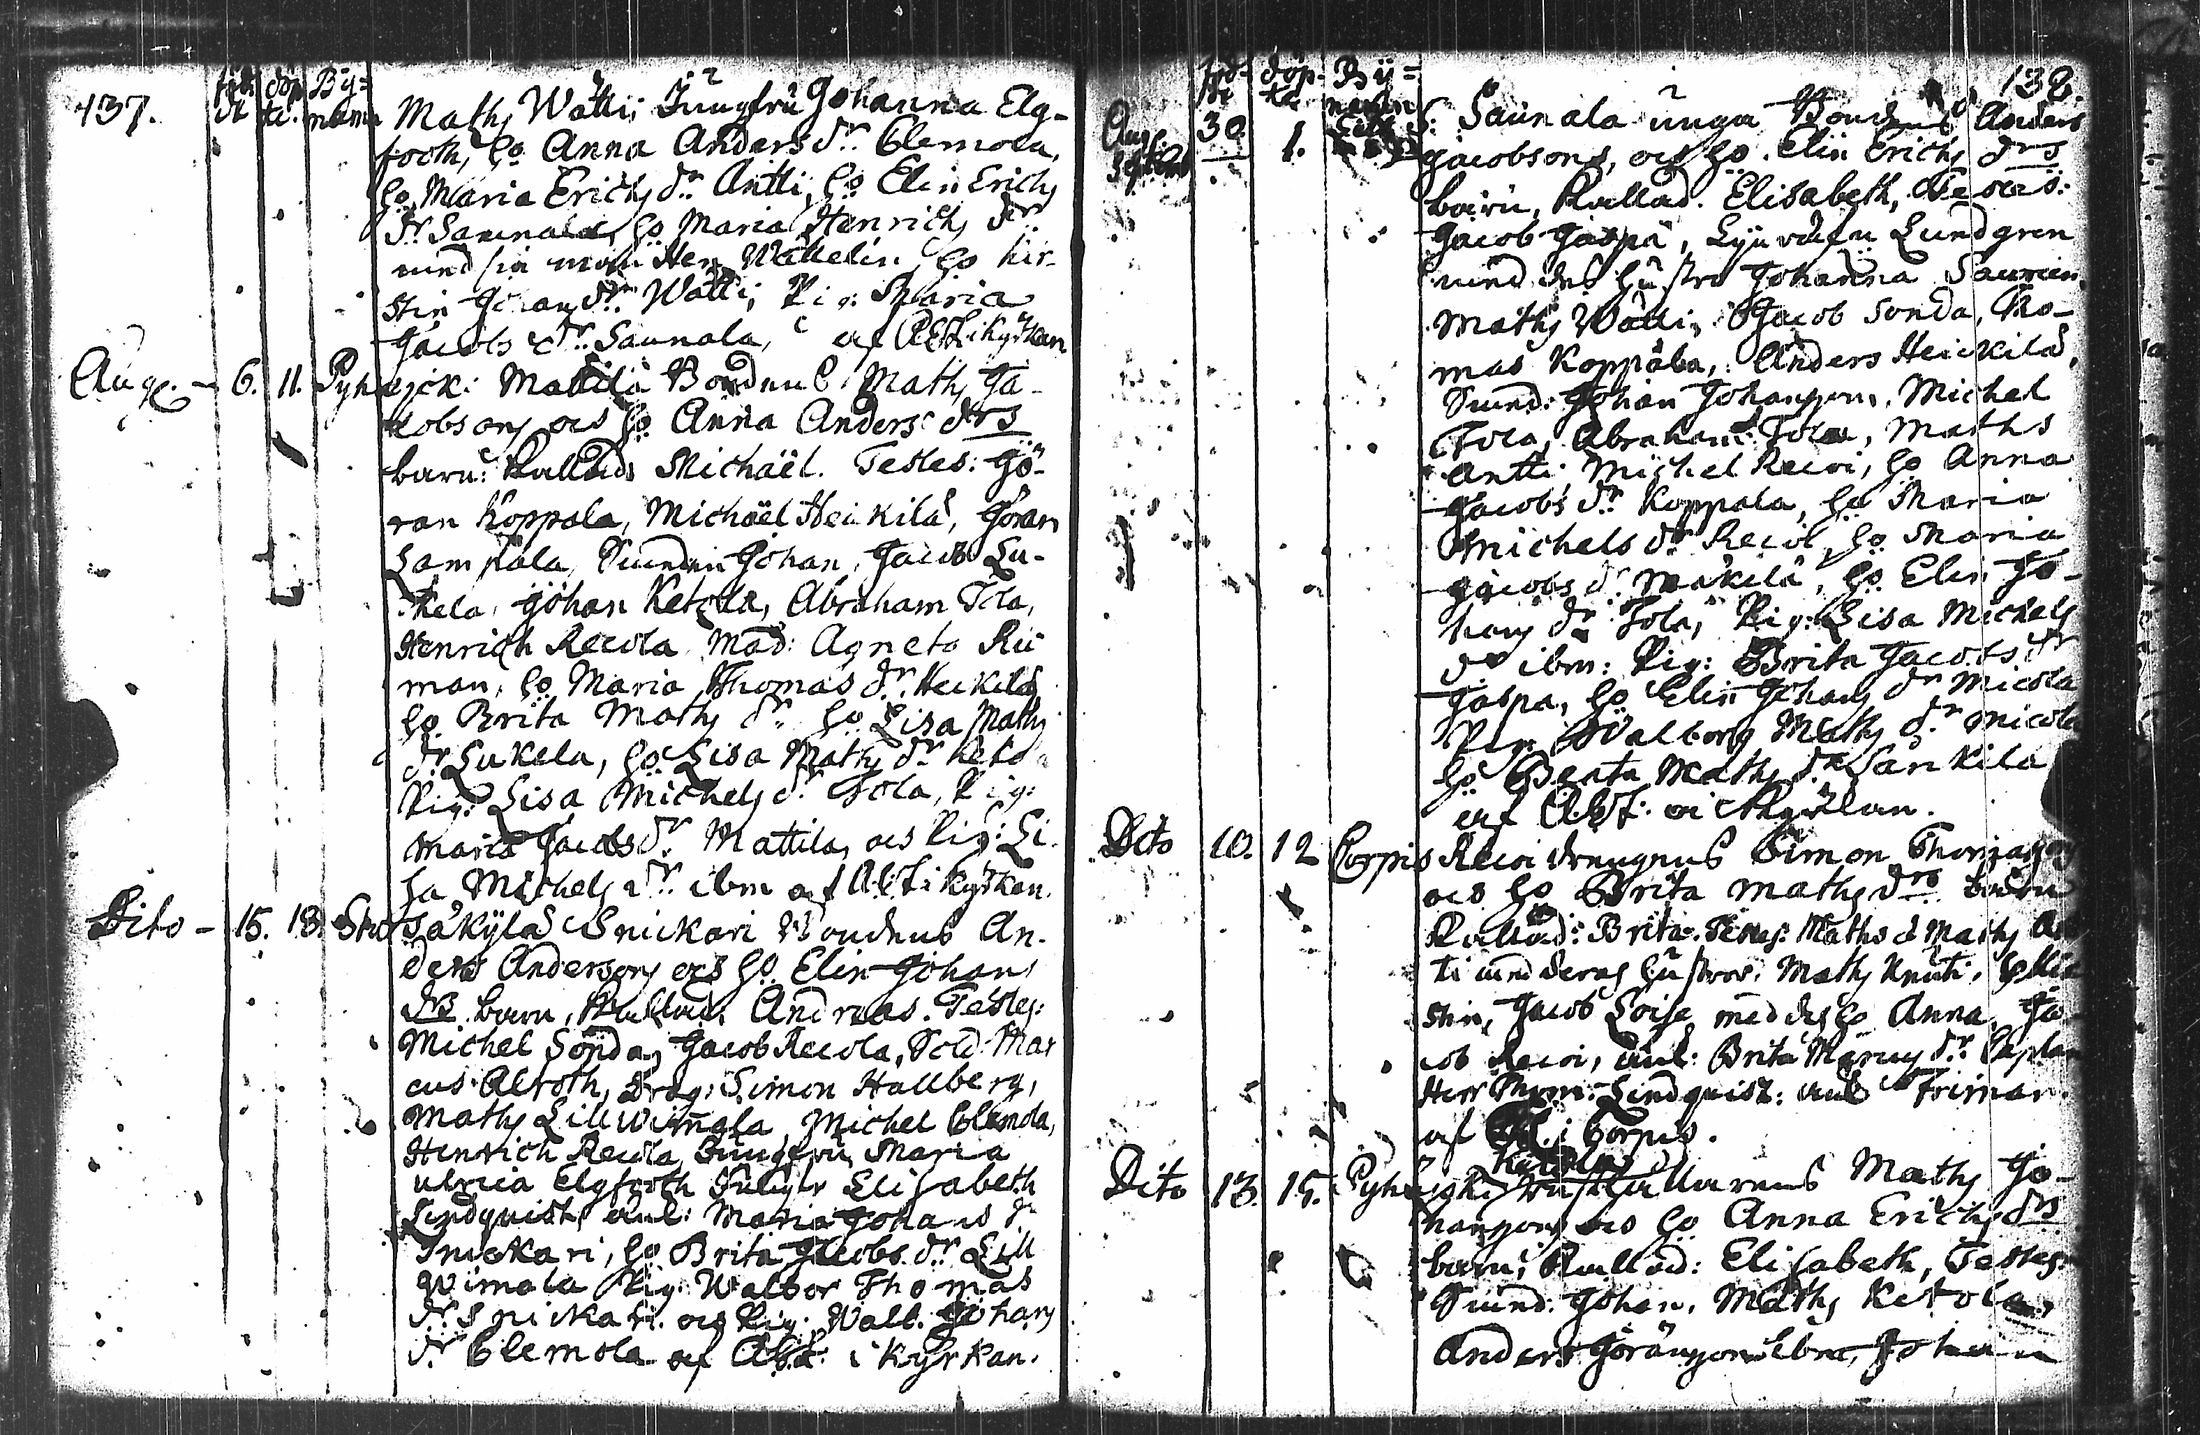 137.
föd- döp- By-
de te. namn
Maths Wätti, Jungfru Johanna Elg-
footh, Ho Anna Anders dr Clemola,
Ho Maria Erichs dr Antti, Ho Elin Erichs
dr Saunala, Ho Maria Henrichs dr
med sin man Hen. Wallelin, Ho Kir-
stin Görans dr Wätti, Pig: Maria
Jacobs dr Saunala, af Abt i kyrkan
Aug. - 6. 11. Pyhäjok: Mattila Bondens Maths Ja-
cobsons och Ho Anna Anders drs
barn: Kallads Michaël. Testes: Gö-
ran Koppala, Michaël Heickilä, Göran
Sampala, Johan, Jacob Lu-
kela, Johan Ketola, Abraham Tola,
Henrich Recola Mad: Agneta Ru-
man, Ho Maria Thomas dr Heickilä
Ho Brita Maths dr Ho Lisa Maths
dr Lukela, Ho Lisa Maths dr Keto
Pig: Lisa Michels dr Tola, Pig:
Maria Jacobs dr Mattila, och Pig: Li-
sa Michels dr ibm af Abt i kyrkan.
Dito - 15. 18. Säkylä Snickari Bondens An-
ders Andersons och Ho Elin Johans
drs barn, Kallad Andreas. Testes:
Michel Sonda, Jacob Recola, Sold: Mar
cus Alroth, Drag: Simon Hallberg,
Maths Lillwimala, Michel Clemola,
Henrich Recola Jungfru Maria
Ulrica Elgfooth Elisabeth
Lindquist, Maria Johans dr
Snickari, Ho Brita Jacobs dr Lill
wimala Pig: Walbor Thomas
dr Snickari och Pig: Walb. Johans
dr Clemola af Abt: i kyrkan.
138.
föd- döp- By-
de te namn
Aug. 30.
Septemb 1.
Saunala unga Bondens Anders
Jacobsons, och Ho. Elin Erichs drs
barn, Kallad. Elisabeth, Testes:
Jacob Jaspa, Lundgren
med des Hustru Johanna
Maths Wätti, Jacob Sonda, Tho-
mas Koppala, Anders Heickilä,
Johan Johansson, Michel
Tola, Abraham Tola, Maths
Antti, Michel Recoi, Ho Anna
Jacobs dr Koppala, Ho Maria
Michels dr Recoi, Ho Maria
Jacobs dr Mäkilä, Ho Elin Jo-
hans dr Tola, Pig: Lisa Michels
dr ibm: Pig: Brita Jacobs dr
Jaspa, Ho Elin Johans dr Micola
Walborg Maths dr Micola
Ho Beata Maths dr Särikila
af Abt: i kyrkan.
Dito 10. 12 Corpis Recoi drengens Simon Thomasons
och Ho Brita Maths drs barn
Kallad: Brita. Testes: Maths & Maths An
ti med deras Hustrur. Maths Knuti, Ho Kir
stin, Jacob Loise med des Ho Anna, Ja-
cob Recoi, Brita dr Caplan
Herr Lindquist:
af i Corpis.
Dito 13. 15. Pyhäjoki Maths Jo-
hansons och Ho Anna Erichs drs
barn, Kallad: Elisabeth, Testes:
Johan, Maths Ketola,
Anders Göransson ibm, Johan